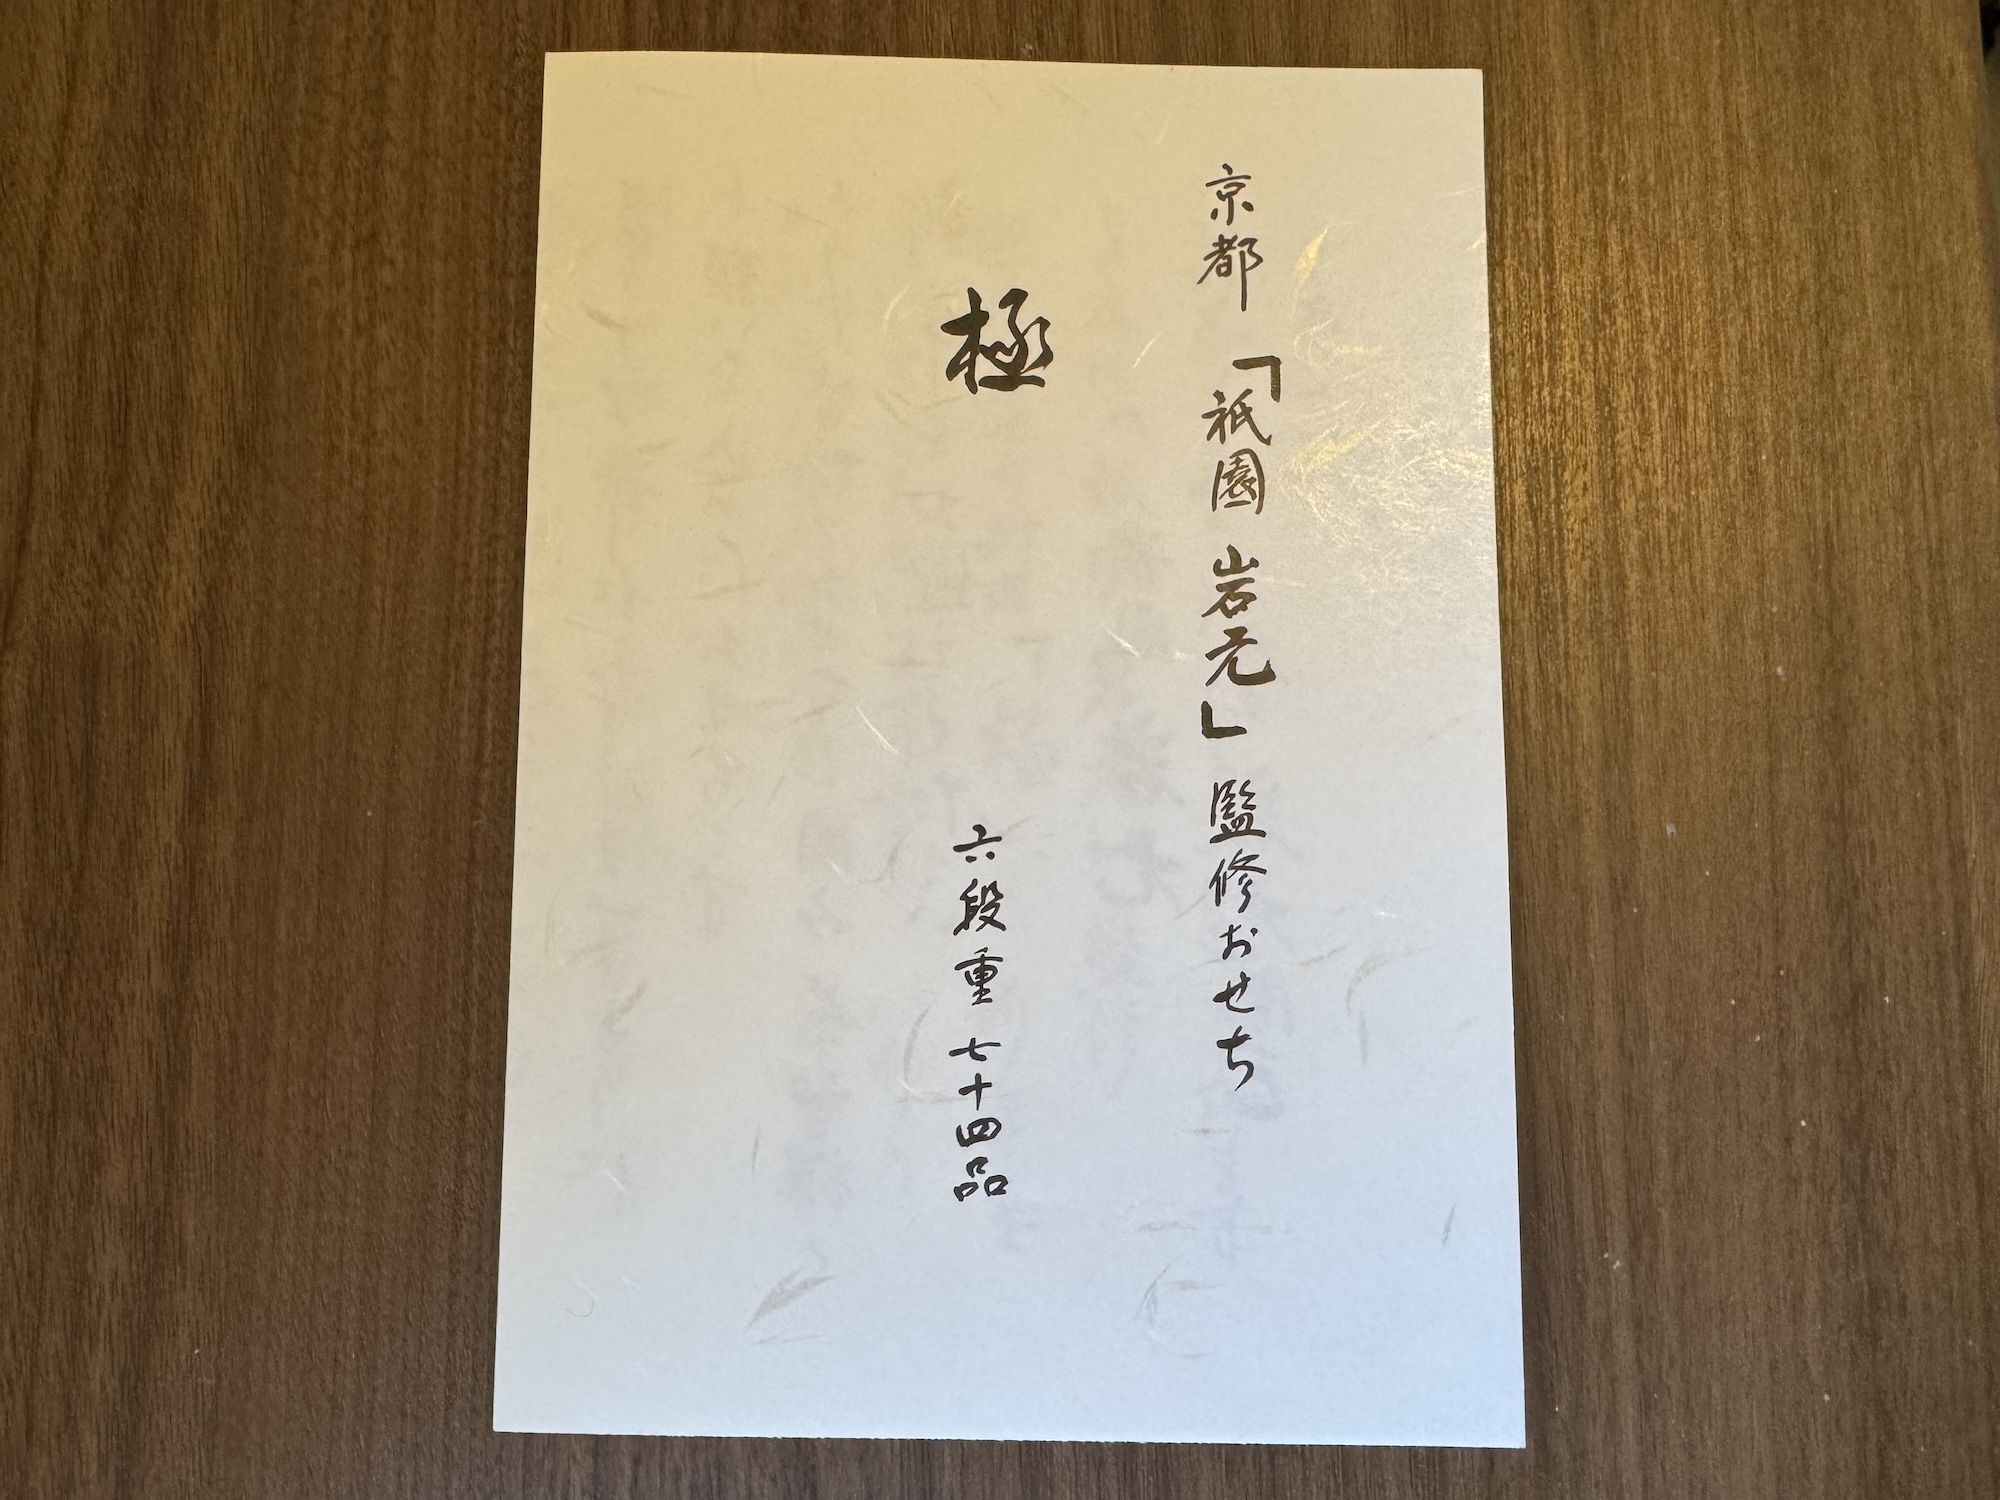 京都「祇園 岩元」監修おせち
極 六段重 七十四品